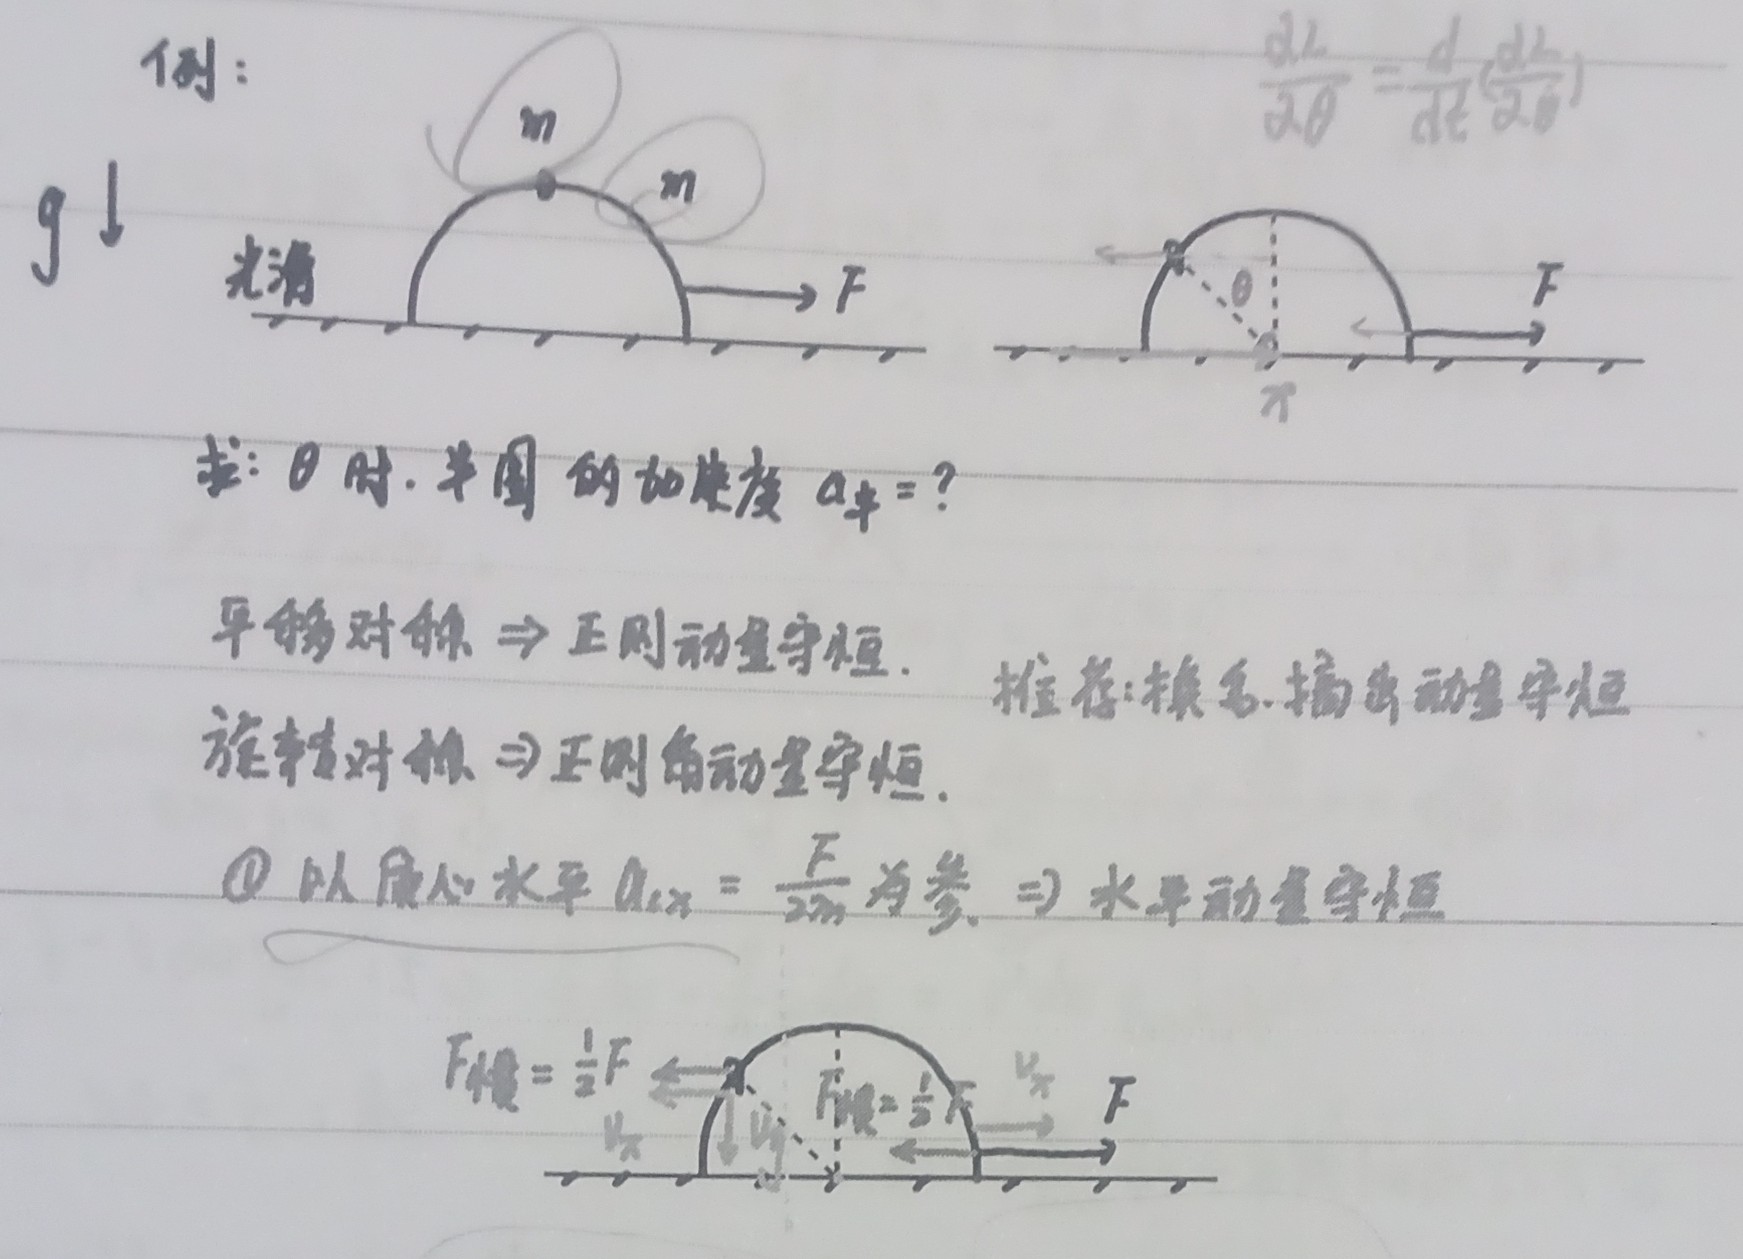 例:
∂L/∂θ = d/dt(∂L/∂θ̇)
m
m
g↓
光滑
F
θ
F
x
求: θ时.半圆的加速度 a半=?
平移对称 ⇒ 正则动量守恒.
推荐:换系.摘出动量守恒
旋转对称 ⇒ 正则角动量守恒.
① 以质心水平 a_cx = F/2m 为参. ⇒ 水平动量守恒
F惯 = 1/2 F
F惯 = 1/2 F
v_x
F
v_x
v_y